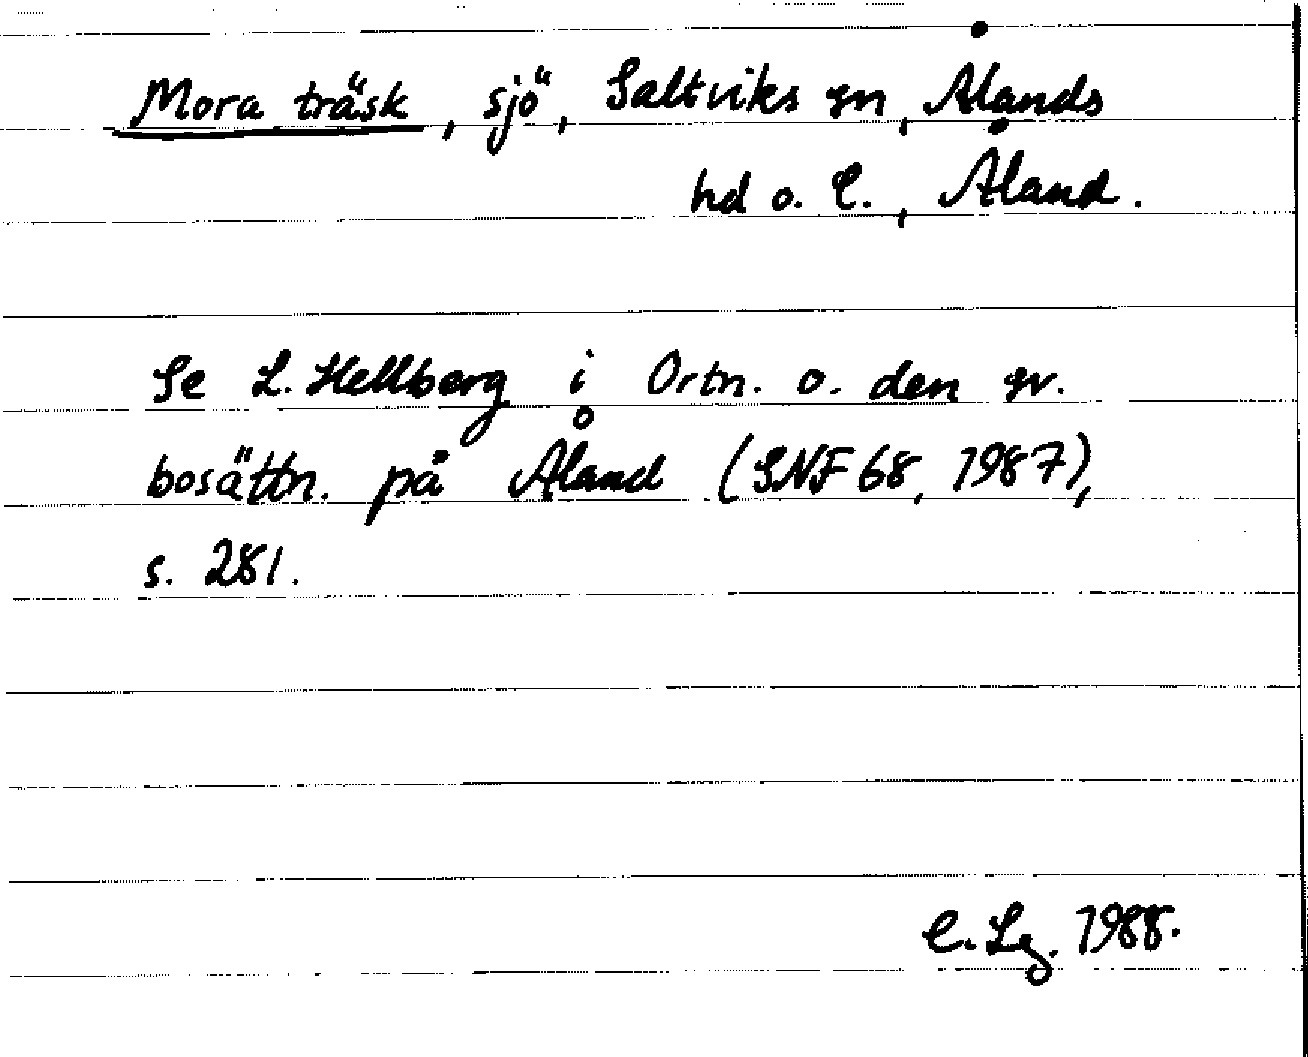 Mora träsk, sjö, Saltviks sn, Ålands
hd o. l., Åland.
Se L. Hellberg i Ortn. o. den sv.
bosättn. på Åland (SNF 68, 1987),
s. 281.
C. Lg. 1988.